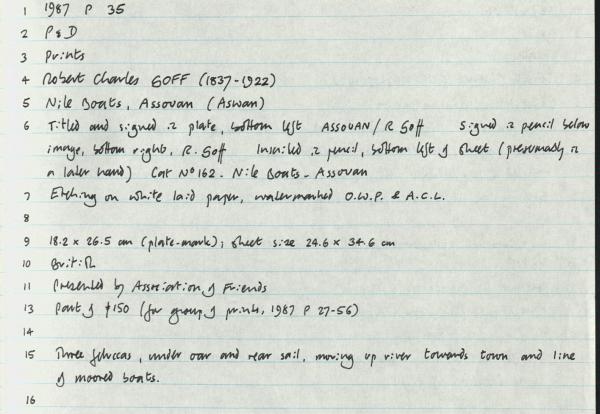 1 1987 P 35
2 P & D
3 Prints
4 Robert Charles GOFF (1837-1922)
5 Nile Boats, Assouan (Aswan)
6 Titled and signed in plate, bottom left ASSOUAN / R Goff Signed in pencil below
image, bottom right, R. Goff Inscribed in pencil, bottom left of sheet (presumably in
a later hand) Cat Nº 162. Nile Boats - Assouan
7 Etching on white laid paper, watermarked O.W.P. & A.C.L.
8
9 18.2 x 26.5 cm (plate-mark); sheet size 24.6 x 34.6 cm
10 British
11 Presented by Association of Friends
13 Part of £150 (for group of prints, 1987 P 27-56)
14
15 Three feluccas, under oar and rear sail, moving up river towards town and line
of moored boats.
16